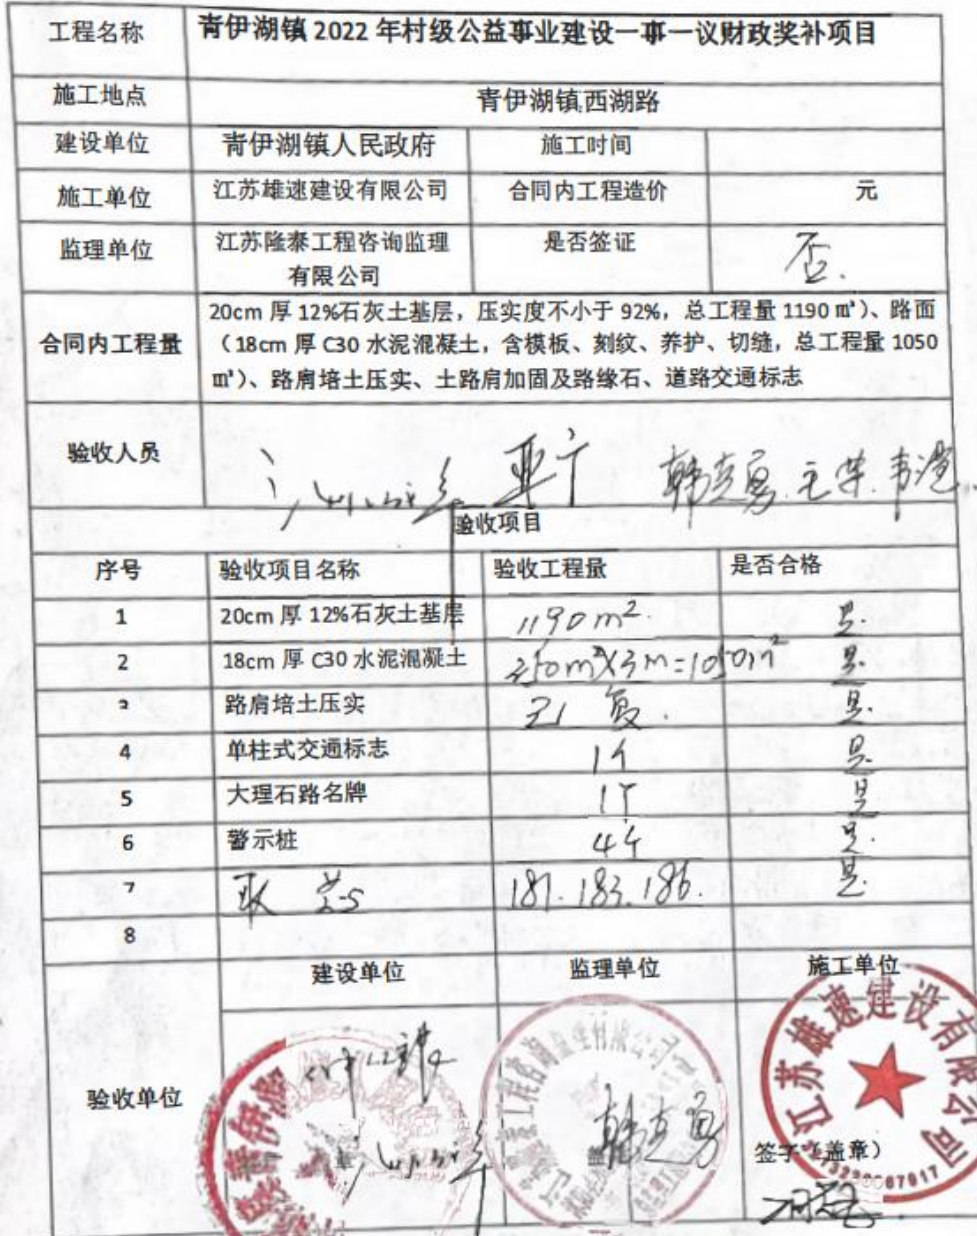 工程名称 青伊湖镇 2022 年村级公益事业建设一事一议财政奖补项目
施工地点 青伊湖镇西湖路
建设单位 青伊湖镇人民政府 施工时间
施工单位 江苏雄速建设有限公司 合同内工程造价 元
监理单位 江苏隆泰工程咨询监理 是否签证 否.
有限公司
20cm 厚 12%石灰土基层，压实度不小于 92%，总工程量 1190 ㎡）、路面
合同内工程量 （18cm 厚 C30 水泥混凝土，含模板、刻纹、养护、切缝，总工程量 1050
㎡）、路肩培土压实、土路肩加固及路缘石、道路交通标志
验收人员 韩克勇
验收项目
序号 验收项目名称 验收工程量 是否合格
1 20cm 厚 12%石灰土基层 1190m². 是.
2 18cm 厚 C30 水泥混凝土 =1050m² 是.
3 路肩培土压实 是.
4 单柱式交通标志 1个 是
5 大理石路名牌 1个 是
6 警示桩 4个 是.
7 181.183.186. 是.
8
建设单位 监理单位 施工单位
验收单位
韩克勇
江苏雄速建设有限公司
签字（盖章）